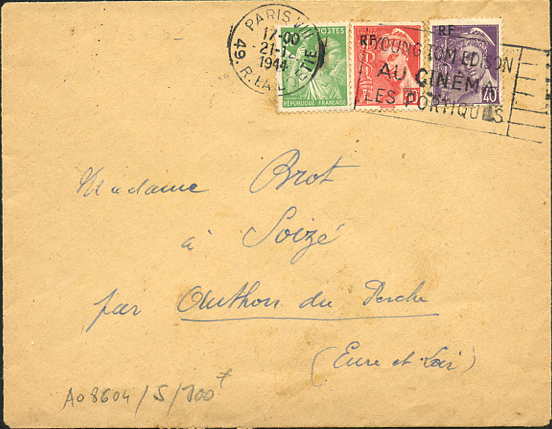 PARIS VIII
17-00
1944
49. R. LA
POSTES
RÉPUBLIQUE FRANÇAISE
RF
RF
YOUNG TOM EDISON
AU CINÉMA
LES PORTIQUES
40
Madame Brot
à Soizé
par Authon du Perche
(Eure et Loir)
A08604/S/100+